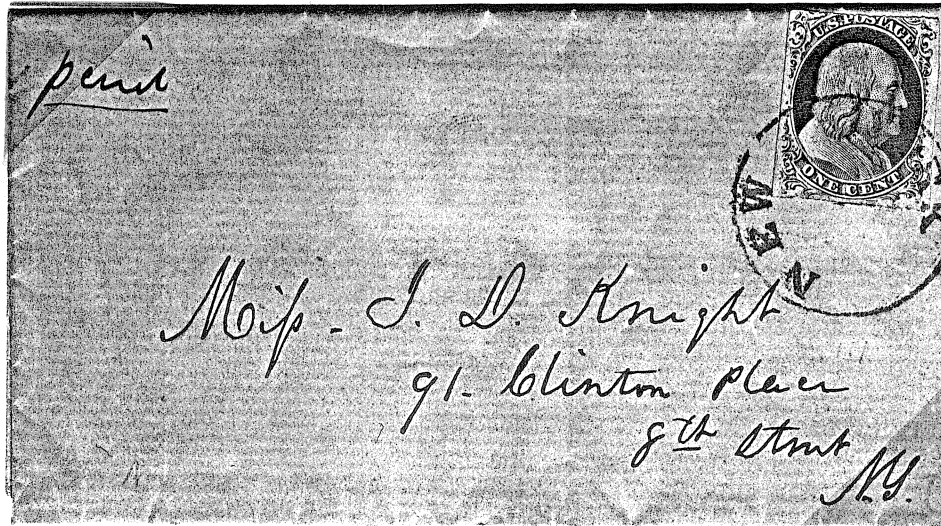 paid
U.S. POSTAGE
ONE CENT
NEW
Miſs - J. D. Knight
91- Clinton Place
8th Street
N.Y.